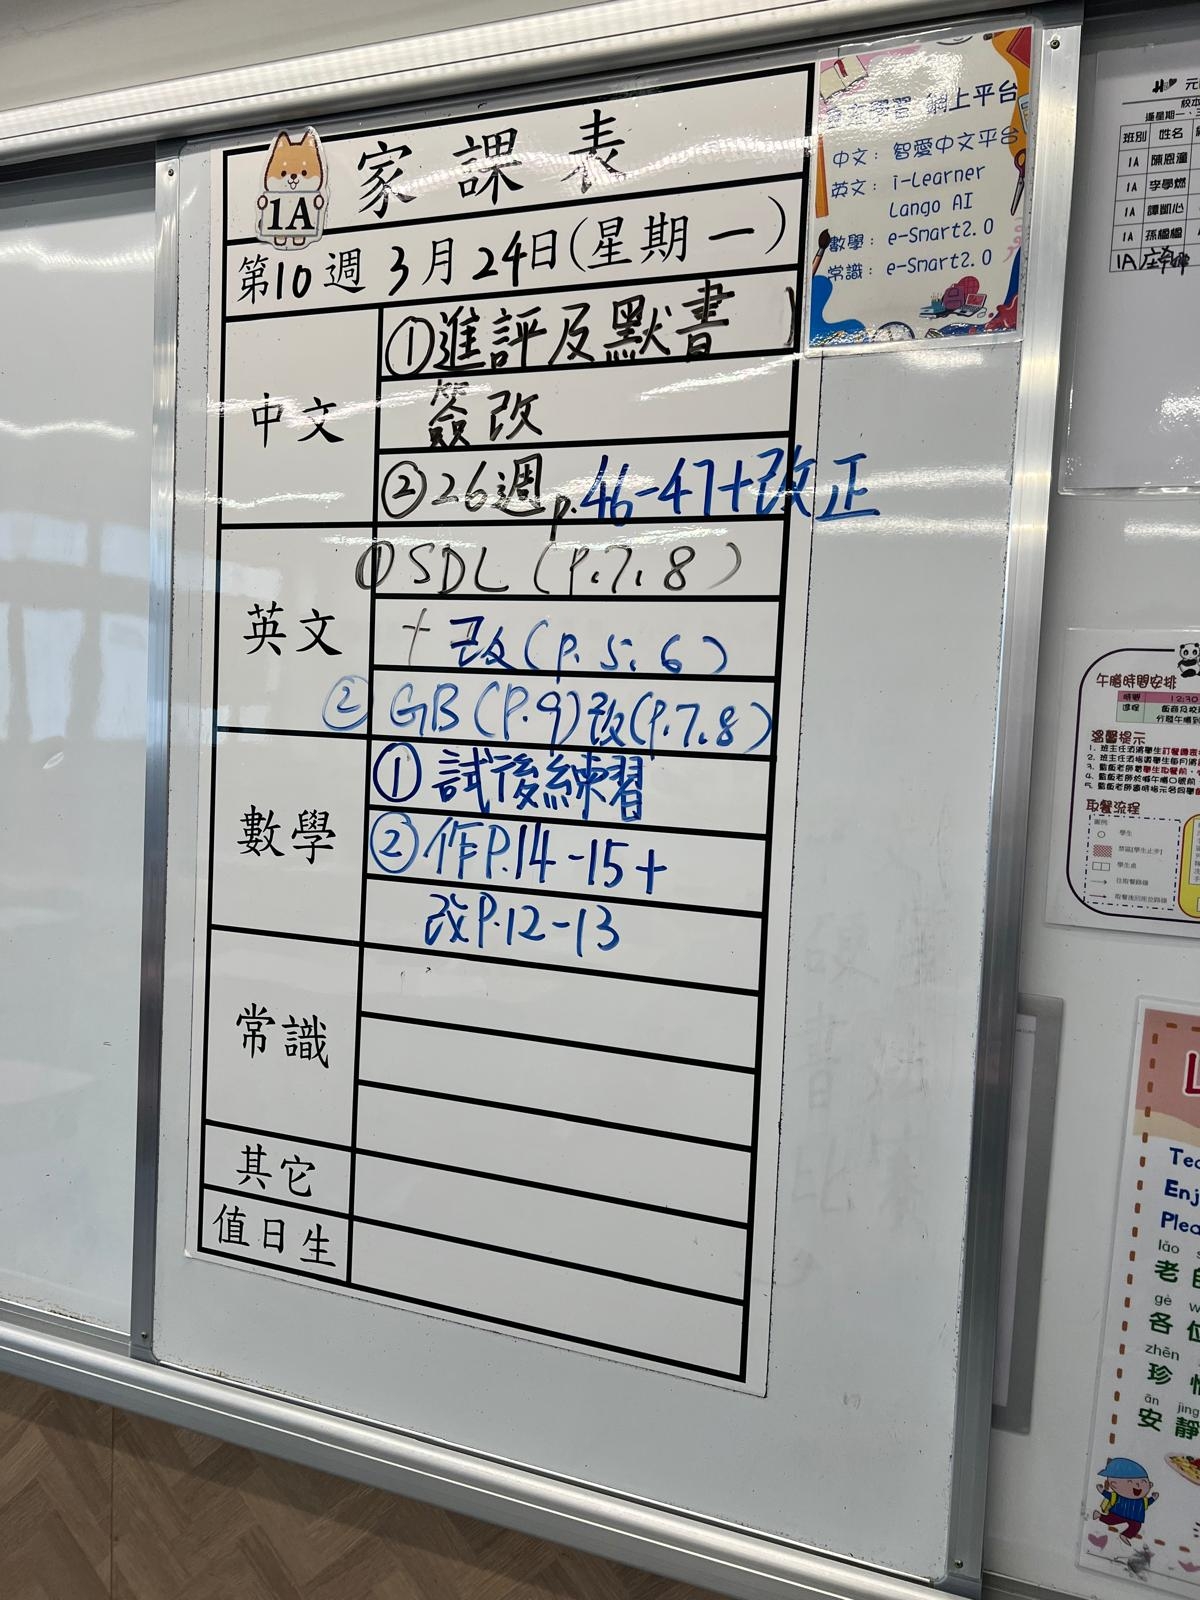 家課表
1A
第10週 3月24日(星期一)
中文
①進評及默書
簽改
②26週p.46-47+改正
英文
①SDL (P.7.8)
+改(p.5.6)
② GB(P.9)改(P.7.8)
數學
①試後練習
②作P.14-15+
改P.12-13
常識
其它
值日生
網上平台
中文：智愛中文平台
英文：i-Learner
Lango AI
數學：e-Smart2.0
常識：e-Smart2.0
班別 姓名
1A 陳恩潼
1A 李學燃
1A 譚凱心
1A
1A
午膳時間安排
時間 12:30
溫馨提示
取餐流程
圖例
學生
學生桌
Enj
lǎo
老
gè
各
zhēn
珍
ān jìng
安靜